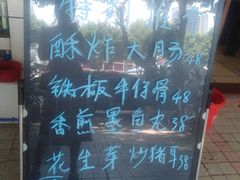 酥炸大肠48
铁板牛仔骨48
香煎墨鱼丸38
花生芽炒猪耳38